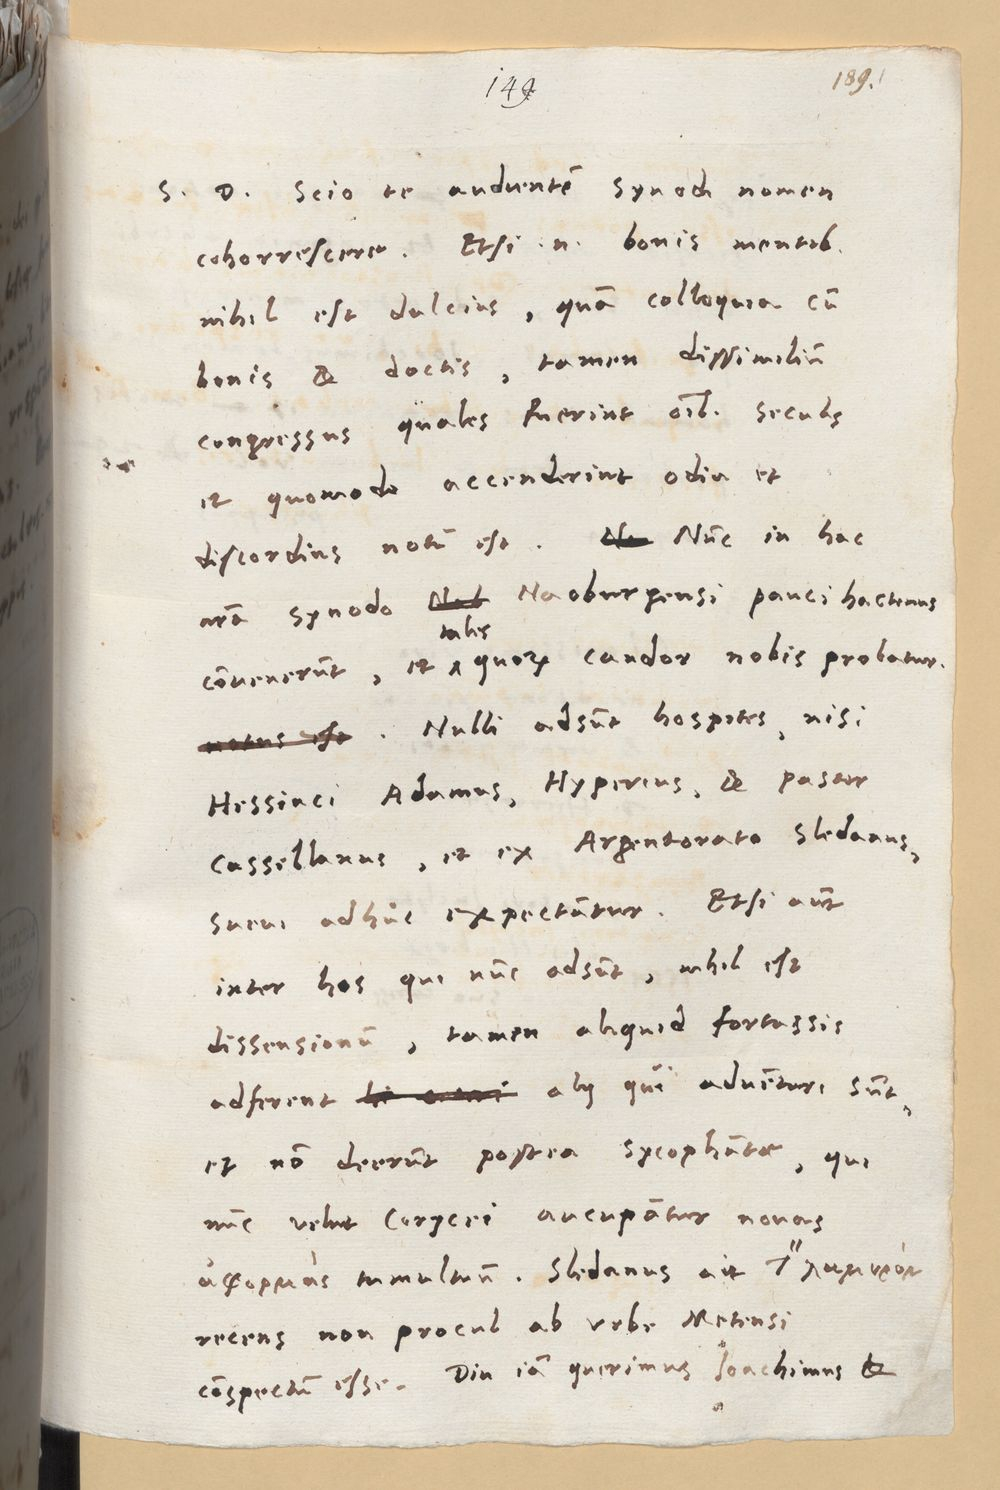 149
189.
S. D. Scio te audientē synodi nomen
cohorrescere. Etsi .n. bonis mentib.
nihil est dulcius, quā colloquia cū
bonis & doctis, tamen dissimiliū
congressus quales fuerint oīb. seculis
et quomodo accenderint odia et
discordias notū est. Nūc in hac
nrā synodo Naoburgensi pauci hactenus
cōuenerūt, et tales quoꝝ candor nobis probatur.
notus est. Nulli adsūt hospites, nisi
Hessiaci Adamus, Hyperius, & pastor
Cassellanus, et ex Argentorato Sledanus,
Sueui adhūc expectātur. Etsi aūt
inter hos qui nūc adsūt, nihil est
dissensionū, tamen aliquid fortassis
adferent alij qui aduēturi sūt,
et nō deerūt postea sycophātæ, qui
nūc velut Corycei aucupātur nouas
ἀφορμὰς tumultuū. Sledanus ait
recens non procul ab vrbe Metensi
cōspectū esse. Diu iā querimus Ioachimus &